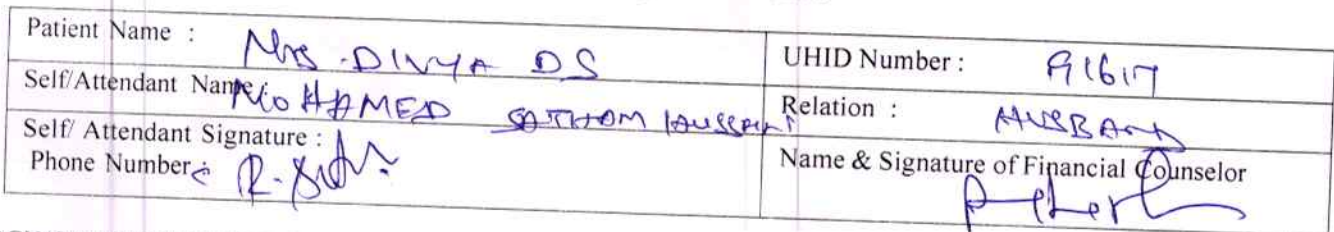 Patient Name : Mrs. DIVYA DS
UHID Number : 91617
Self/Attendant Name: MOHAMED
Relation : HUSBAND
Self/ Attendant Signature :
Phone Number:
Name & Signature of Financial Counselor